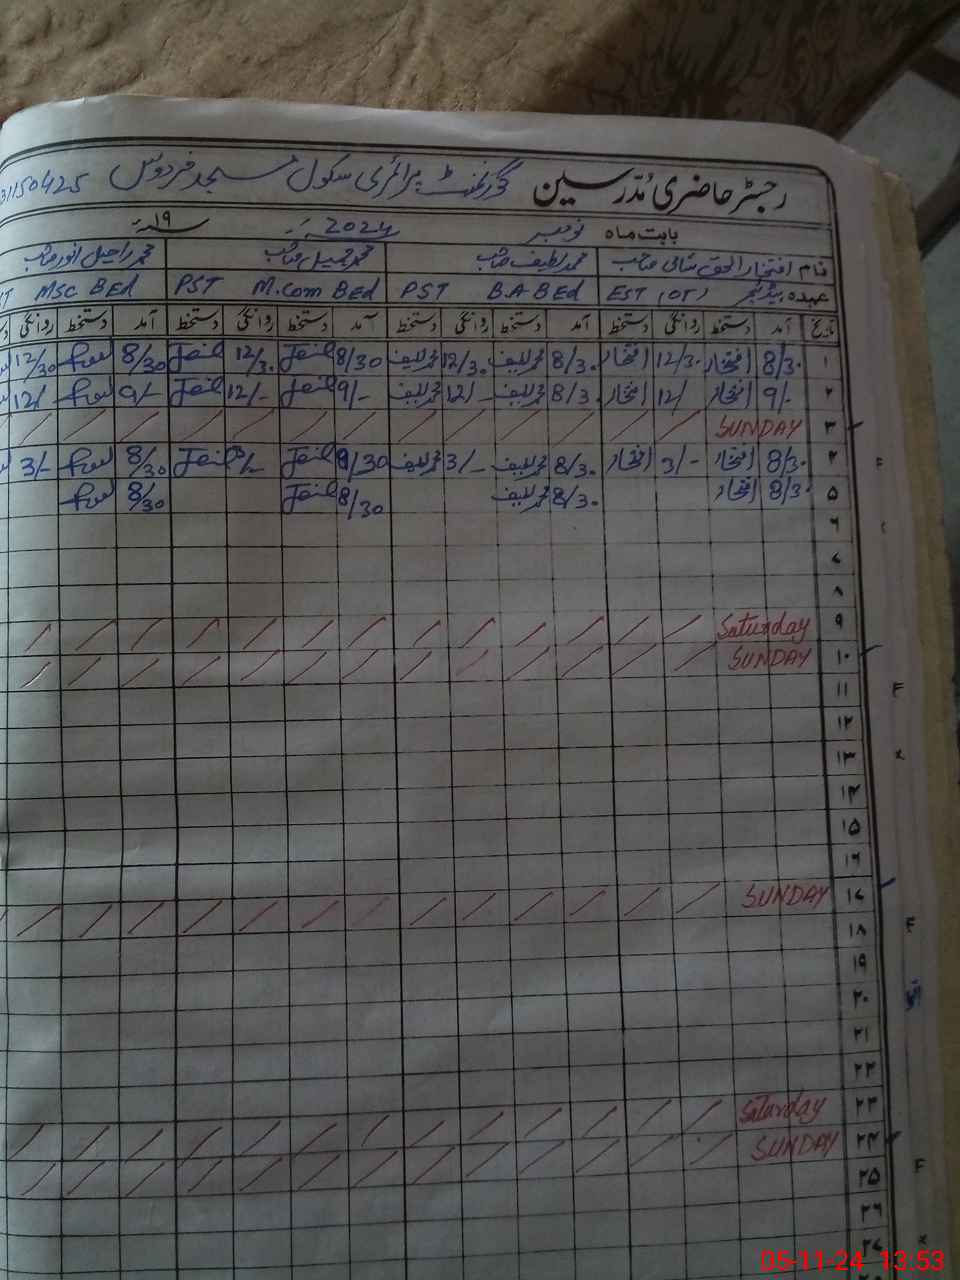 رجسٹر حاضری مُدّرسین گورنمنٹ پرائمری سکول مسجد فردوس 31150425
بابت ماہ نومبر 2024ء ۱۹ء
نام افتخار الحق شامی صاحب محمد لطیف صاحب محمد جمیل صاحب محمد راحیل انور صاحب
عہدہ ہیڈ ٹیچر EST (OT) B.A BEd PST M.Com BEd PST MSc BEd
تاریخ آمد دستخط روانگی دستخط آمد دستخط روانگی دستخط آمد دستخط روانگی دستخط آمد دستخط روانگی
۱ 8/30 افتخار 12/30 افتخار 8/30 محمد لطیف 12/30 محمد لطیف 8/30 Jamil 12/30 Jamil 8/30 12/30
۲ 9/- افتخار 12/ افتخار 8/30 محمد لطیف 12/- محمد لطیف 9/- Jamil 12/- Jamil 9/- 12/
۳ SUNDAY
۴ 8/30 افتخار 3/- افتخار 8/30 محمد لطیف 3/- محمد لطیف 8/30 Jamil 3/- Jamil 8/30 3/-
۵ 8/30 افتخار 8/30 محمد لطیف 8/30 Jamil 8/30
۶
۷
۸
۹ Saturday
۱۰ SUNDAY
۱۱ F
۱۲
۱۳
۱۴
۱۵
۱۶
۱۷ SUNDAY
۱۸ F
۱۹
۲۰
۲۱
۲۲
۲۳ Saturday
۲۴ SUNDAY
۲۵ F
۲۶
۲۷
05-11-24 13:53